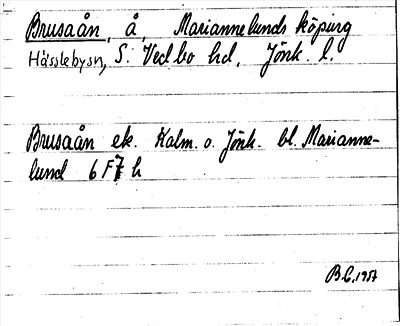 Brusaån, å, Mariannelunds köping
Hässlebysn, S. Vedbo hd, Jönk. l.
Brusaån ek. Kalm. o. Jönk. bl. Marianne-
lund 6 F 7 h
B.C. 1957